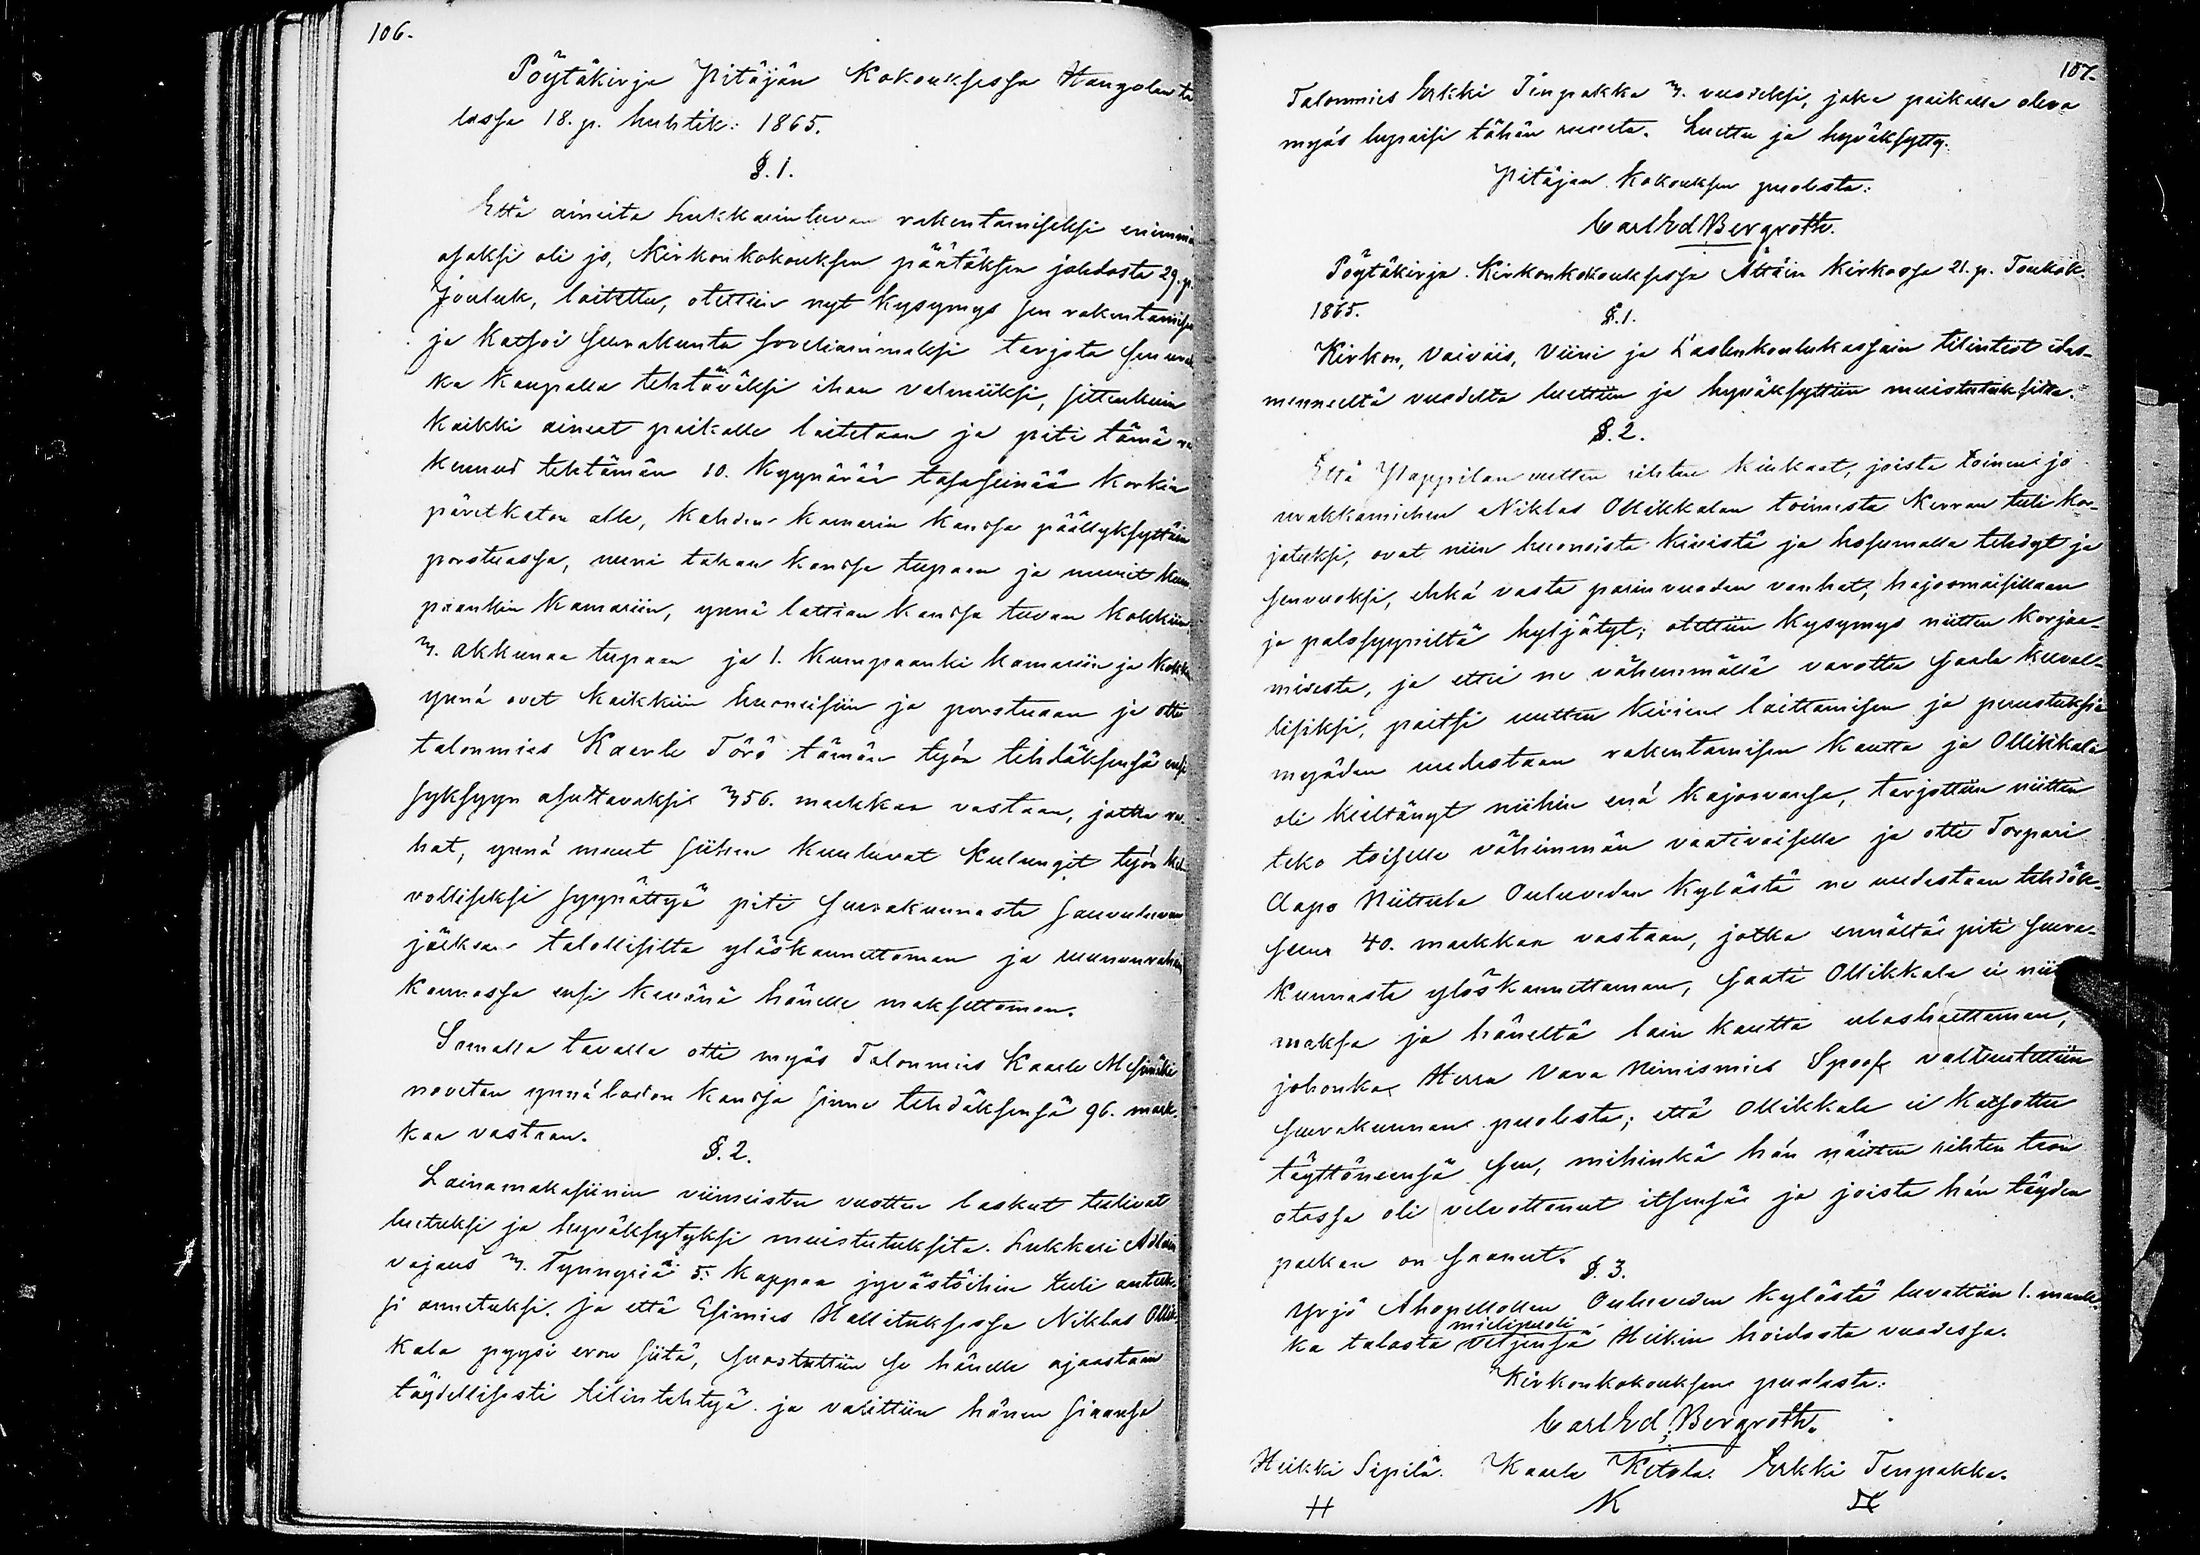 106.
Pöytäkirja Pitäjän Kokouksessa Haugolan ta
lossa 18. p. huhtik: 1865.
§. 1.
Että aineita Lukkarintuvan rakentamiseksi enimmä
osaksi oli jo, Kirkonkokouksen päätöksen johdosta 29. p.
Jouluk, laitettu, otettiin nyt kysymys sen rakentamise
ja katsoi Seurakunta soveliaimmaksi tarjota sen ura
ka kaupalla tehtäväksi ihan valmiiksi, sittenkuin
kaikki aineet paikalle laitetaan ja piti tämä ra
kennus tehtämän 10. kyynärää tasaseinää korkia
päretkaton alle, kahden kamarin kanssa päällyksyttäin
porstuassa, uuni takan kanssa tupaan ja uunit kum
paankin kamariin, ynnä lattian kanssa tuvan kokkiin
3. akkunaa tupaan ja 1. kumpaanki kamariin ja kokki
ynnä ovet kaikkiin huoneisiin ja porstuaan ja otti
talonmies Kaarle Törö tämän työn tehdäksensä ensi
syksyyn asuttavaksi 356. markkaa vastaan, jotka ra
hat, ynnä muut siihen kuuluvat kulungit työn kel
volliseksi syynättyä piti seurakunnasta sauvuluvun
jälkeen talollisilta ylöskannettaman ja uununrahan
kannossa ensi kevänä hänelle maksettaman.
Samalla tavalla otti myös Talonmies Kaarle Mesimäki
navetan ynnä ladon kanssa sinne tehdäksensä 96. mark-
kaa vastaan.
§. 2.
Lainamakasiinin viimeisten vuotten laskut tulivat
luetuksi ja hyväksytyksi muistutuksita. Lukkari Adlerin
vajaus 3. Tynnyriä 5. kappaa jyvästöihin tuli anteek-
si annetuksi. Ja että Esimies Hallituksessa Niklas Ollik
kala pyysi eron siitä, suostuttiin se hänelle ajastain
täydellisesti tilintehtyä ja valittiin hänen siaansa
107.
Talonmies Erkki Tenpakka 3. vuodeksi, joka paikalla oleva
myös lupaisi tähän ruveta. Luettu ja hyväksytty.
Pitäjän Kokouksen puolesta:
Carl Ed Bergroth.
Pöytäkirja Kirkonkokouksessa Ätsäin Kirkossa 21. p. Toukok.
1865.
§. 1.
Kirkon, Vaivais, Viini ja Lastenkoulukassain tilintiot edes-
menneeltä vuodelta luettiin ja hyväksyttiin muistutuksitta.
§. 2.
Että Pappilan uutten rihten kiukaat, joista toinen jo
urakkamiehen Niklas Ollikkalan toimesta kerran tuli kor-
jatuksi, ovat niin huonoista kivistä ja hosumalla tehdyt ja
senvuoksi, ehkä vasta parin vuoden vanhat, hajoomaisillaan
ja palosyyniltä hyljätyt; otettiin kysymys niitten korjaa-
misesta, ja ettei ne vähemmällä varotta saada kuval-
lisiksi, paitsi uutten kivien laittamisen ja perustuksia
myöden uudestaan rakentamisen kautta ja Ollikkala
oli kieltänyt niihin enä kajoovansa, tarjottiin niitten
teko toiselle vähimmän vaativaiselle ja otti Torpari
Aapo Niittula Ouluveden kylästä ne uudestaan tehdäk-
sensä 40. markkaa vastaan, jotka ennältä piti seura-
kunnasta ylöskannettaman, saati Ollikkala ei nii
maksa ja häneltä lain kautta uloshaettaman,
johonka Herra Vara Nimismies Spoof valtuutettiin
seurakunnan puolesta; että Ollikkala ei katsottu
täyttäneensä sen, mihinkä hän näitten rihten teon
otossa oli velvottanut itsensä ja joista hän täyden
palkan on saanut.
§. 3.
Yrjö Ahopellollen Ouluveden kylästä luvattiin 1. mark-
ka talosta mielipuoli veljensä Heikin hoidosta vuodessa.
Kirkonkokouksen puolesta:
Carl Ed, Bergroth.
Heikki Sipilä. Kaarle Kitola. Erkki Tenpakka.
H K